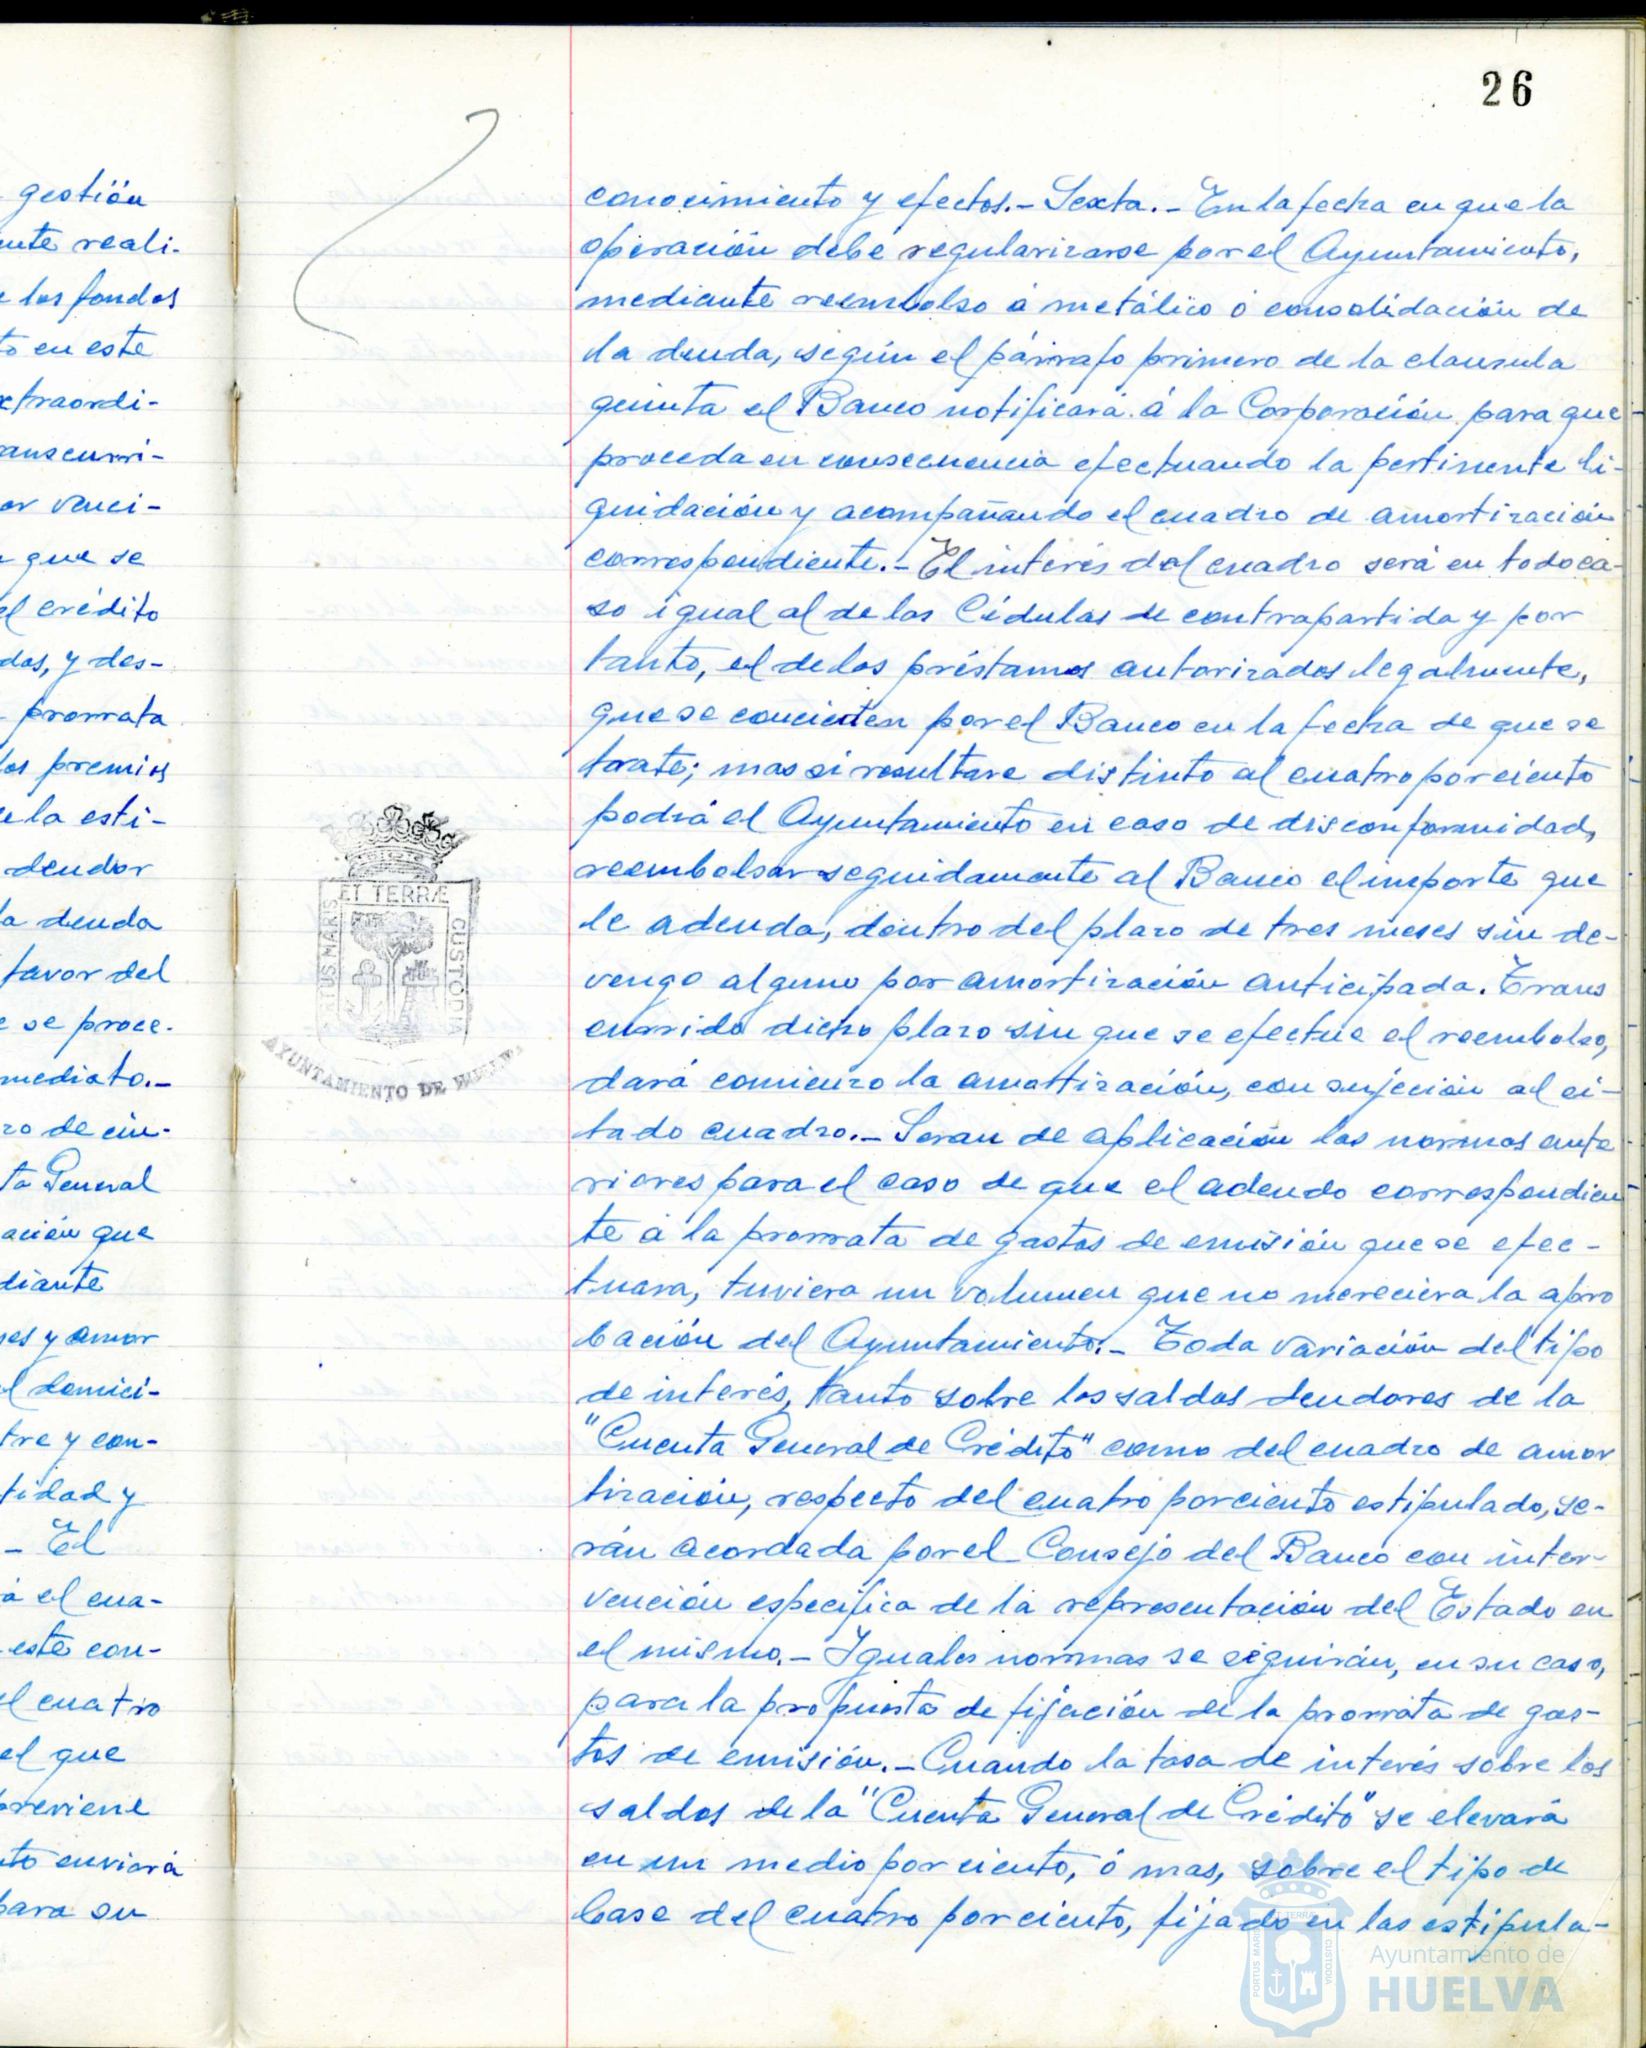 26
gestión
nte reali-
e los fondos
to en este
xtraordi-
anscurri-
or venci-
que se
el crédito
dos, y des-
prorrata
los premios
e la esti-
deudor
la deuda
favor del
e se proce-
mediato.-
zo de cin-
ta General
ación que
diante
ses y amor
el domici-
tre y con-
tidad y
- El
á el cua-
este con-
el cuatro
el que
previene
nto enviará
para su
conocimiento y efectos.- Sexta.- En la fecha en que la
operación debe regularizarse por el Ayuntamiento,
mediante reembolso á metálico ó consolidación de
la deuda, según el párrafo primero de la clausula
quinta el Banco notificará á la Corporación para que
proceda en consecuencia efectuando la pertinente li-
quidación y acompañando el cuadro de amortización
correspondiente.- El interés del cuadro será en todo ca-
so igual al de las Cédulas de contrapartida y por
tanto, el de los préstamos autorizados legalmente,
que se concierten por el Banco en la fecha de que se
trate; mas si resultare distinto al cuatro por ciento
podrá el Ayuntamiento en caso de disconformidad,
reembolsar seguidamente al Banco el importe que
le adeuda, dentro del plazo de tres meses sin de-
vengo alguno por amortización anticipada. Trans
currido dicho plazo sin que se efectue el reembolso,
dará comienzo la amortización, con sujeción al ci-
tado cuadro.- Seran de aplicación las normas ante
riores para el caso de que el adeudo correspondien
te á la prorrata de gastos de emisión que se efec-
tuara, tuviera un volumen que no mereciera la apro
bación del Ayuntamiento.- Toda variación del tipo
de interés, tanto sobre los saldos deudores de la
"Cuenta General de Crédito" como del cuadro de amor
tización, respecto del cuatro por ciento estipulado, se-
rán acordada por el Consejo del Banco con inter-
vención especifica de la representación del Estado en
el mismo.- Iguales normas se seguirán, en su caso,
para la propuesta de fijación de la prorrata de gas-
tos de emisión.- Cuando la tasa de interés sobre los
saldos de la "Cuenta General de Crédito" se elevará
en un medio por ciento, ó mas, sobre el tipo de
base del cuatro por ciento, fijado en las estipula-
ET TERRÆ
CUSTODIA
AYUNTAMIENTO DE HUELVA
PORTUS MARIS
ET TERRÆ
CUSTODIA
Ayuntamiento de
HUELVA